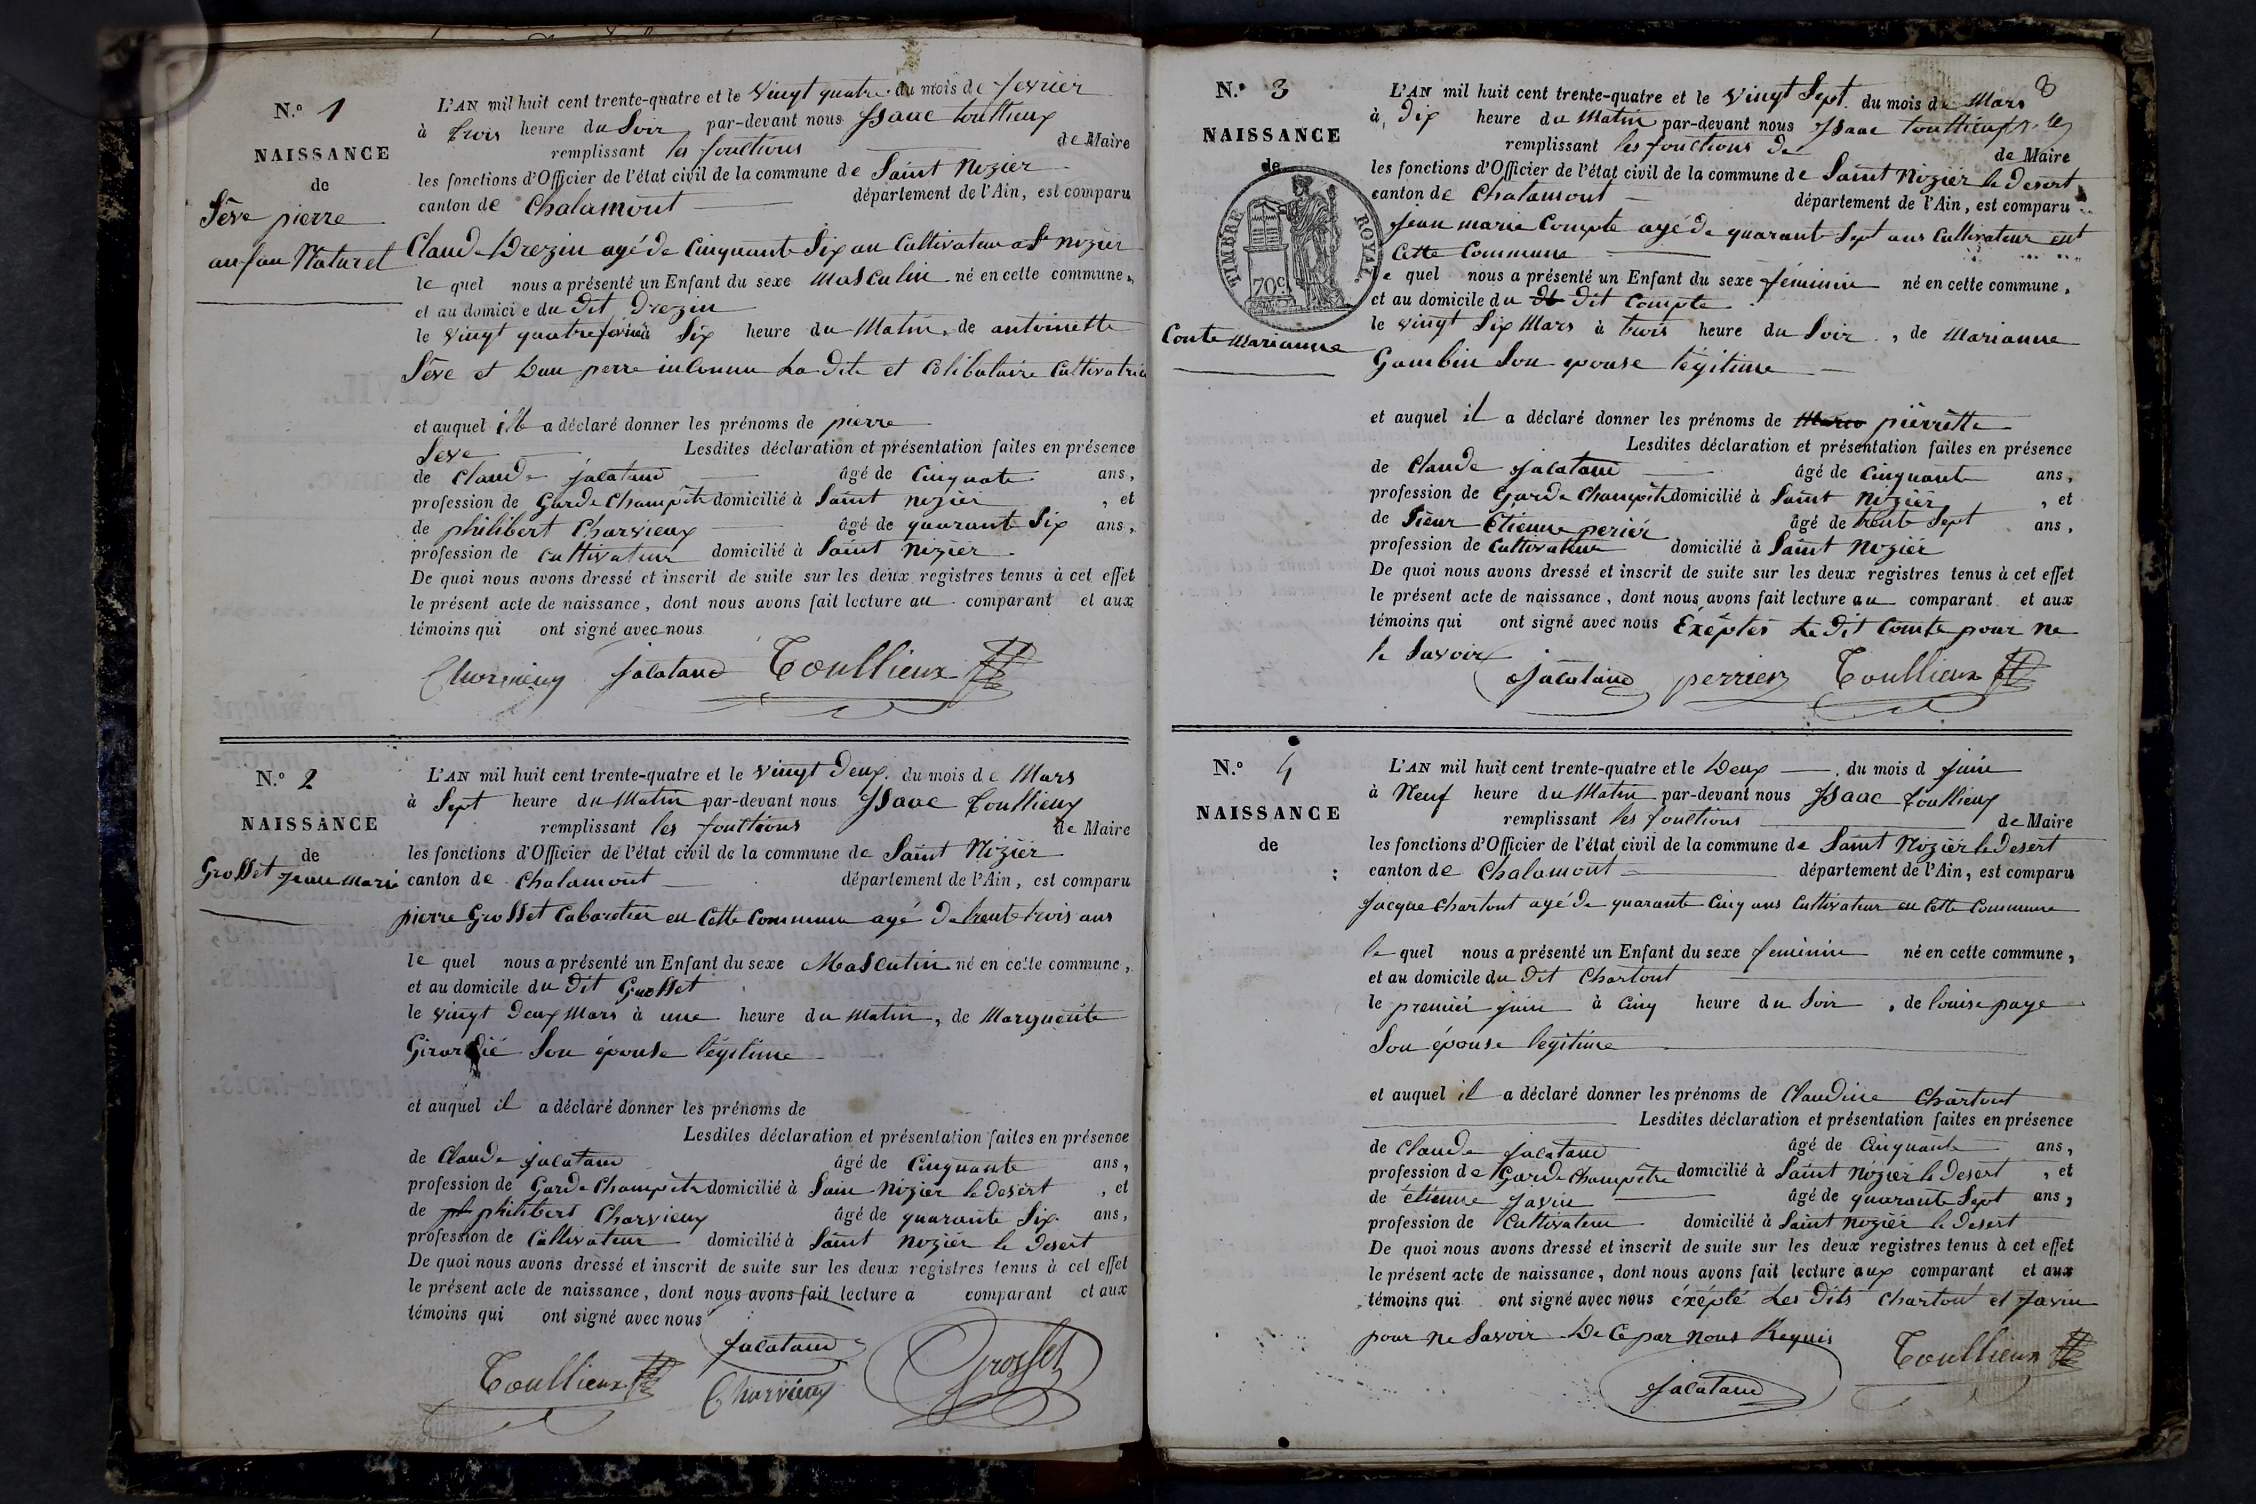 N.º 1
NAISSANCE
de
Sève pierre
anfan Naturel
L'AN mil huit cent trente-quatre et le vingt quatre du mois de fevrier
à trois heure du Soir par-devant nous Isaac touttieux
remplissant les fonctions de Maire
les fonctions d'Officier de l'état civil de la commune de Saint Nizier
canton de Chalamont département de l'Ain, est comparu
Claude Drezin agé de Cinquante Six an Cultivateur a St nizier
le quel nous a présenté un Enfant du sexe masculin né en cette commune,
et au domicile du dit Drezin
le vingt quatre fevrier à Six heure du Matin, de antoinette
Sève et D'un perre inconnu La dite et Célibataire Cultivatrice
et auquel il a déclaré donner les prénoms de pierre
Seve Lesdites déclaration et présentation faites en présence
de Claude jacatand âgé de Cinquate ans,
profession de Garde Champête domicilié à Saint nizier, et
de philibert Charvieux âgé de quarante Six ans,
profession de Cultivateur domicilié à Saint nizier
De quoi nous avons dressé et inscrit de suite sur les deux registres tenus à cet effet
le présent acte de naissance, dont nous avons fait lecture au comparant et aux
témoins qui ont signé avec nous
Charvieux jacatand Toullieux
N.º 2
NAISSANCE
de
Grosset Jean Marie
L'AN mil huit cent trente-quatre et le vingt Deux du mois de Mars
à Sept heure du Matin par-devant nous Isaac Toullieux
remplissant les fonctions de Maire
les fonctions d'Officier de l'état civil de la commune de Saint Nizier
canton de Chalamont département de l'Ain, est comparu
pierre Grosset Cabaretier en Cette Commune agé de trente trois ans
le quel nous a présenté un Enfant du sexe Masculin né en cette commune,
et au domicile du dit Grosset
le vingt Deux Mars à une heure du Matin, de Marguerite
Girardié Son épouse légitime
et auquel il a déclaré donner les prénoms de
Lesdites déclaration et présentation faites en présence
de Claude jacatand âgé de Cinquante ans,
profession de Garde Champête domicilié à Sain Nizier le desert, et
de philibert Charvieux âgé de quarante Six ans,
profession de Cultivateur domicilié à Saint Nizier le Desert
De quoi nous avons dressé et inscrit de suite sur les deux registres tenus à cet effet
le présent acte de naissance, dont nous avons fait lecture a comparant et aux
témoins qui ont signé avec nous
jacatand
Toullieux Charvieux Grosset
N.º 3
NAISSANCE
de
TIMBRE ROYAL
70c
Conte Marianne
8
L'AN mil huit cent trente-quatre et le vingt Sept du mois de Mars
à Dix heure du Matin par-devant nous Isaac touttieux
remplissant les fonctions de de Maire
les fonctions d'Officier de l'état civil de la commune de Saint Nizier le Desert
canton de Chalamont département de l'Ain, est comparu
jean marie Compte agé de quarante Sept ans Cultivateur en
Cette Commune
le quel nous a présenté un Enfant du sexe féminin né en cette commune,
et au domicile du dit Compte
le vingt Six Mars à trois heure du Soir, de Marianne
Gambin Son epouse légitime
et auquel il a déclaré donner les prénoms de pierrette
Lesdites déclaration et présentation faites en présence
de Claude jacatand âgé de Cinquante ans,
profession de Garde Champête domicilié à Saint Nizier, et
de Sieur Etienne perier âgé de trente Sept ans,
profession de Cultivateur domicilié à Saint Nizier
De quoi nous avons dressé et inscrit de suite sur les deux registres tenus à cet effet
le présent acte de naissance, dont nous avons fait lecture au comparant et aux
témoins qui ont signé avec nous Exéptés Le Dit Comte pour ne
le Savoir
jacatand perrier Toullieux
N.º 4
NAISSANCE
de
L'AN mil huit cent trente-quatre et le Deux du mois d juin
à Neuf heure du Matin par-devant nous Isaac toullieux
remplissant les fonctions de Maire
les fonctions d'Officier de l'état civil de la commune de Saint Nizier le Desert
canton de Chalamont département de l'Ain, est comparu
Jacque Chartout agé de quarante Cinq ans Cultivateur en Cette Commune
le quel nous a présenté un Enfant du sexe feminin né en cette commune,
et au domicile du Dit Chartout
le premier juin à Cinq heure du Soir, de louise page
Son épouse légitime
et auquel il a déclaré donner les prénoms de Claudine Chartout
Lesdites déclaration et présentation faites en présence
de Claude jacatand âgé de Cinquante ans,
profession de Garde Champêtre domicilié à Saint Nizier le Desert, et
de étienne javin âgé de quarante Sept ans,
profession de Cultivateur domicilié à Saint nizier le desert
De quoi nous avons dressé et inscrit de suite sur les deux registres tenus à cet effet
le présent acte de naissance, dont nous avons fait lecture aux comparant et aux
témoins qui ont signé avec nous éxépté Les Dits Chartout et javin
pour ne Savoir De Ce par Nous Requis
Toullieux
jacatand